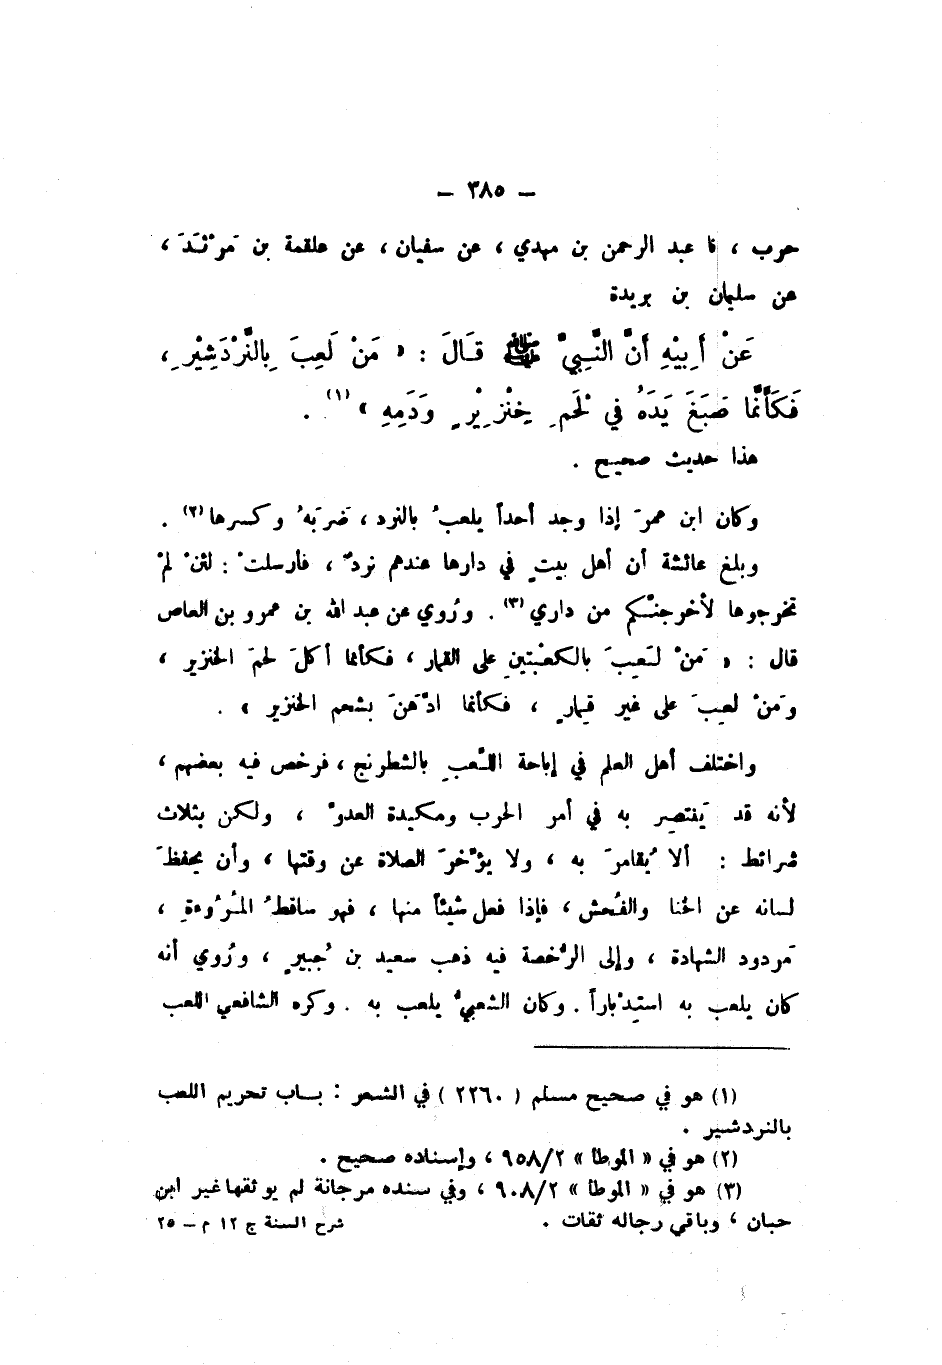 — ٣٨٥ —
حرب ، نا عبد الرحمن بن مهدي ، عن سفيان ، عن علقمة بن مَرْثَدَ ،
عن سليمان بن بريدة
عَنْ أَبِيْهِ أَنَّ النَّبِيَّ ﷺ قَالَ : « مَنْ لَعِبَ بِالنَّرْدَشِيْرِ ،
فَكَأَنَّمَا صَبَغَ يَدَهُ في لَحْمِ خِنْزِيْرٍ وَدَمِهِ » (١) .
هذا حديث صحيح .
وكان ابن عمرَ إذا وجد أحداً يلعبُ بالنرد ، ضرَبَهُ وكسرها (٢) .
وبلغ عائشة أن أهل بيتٍ في دارها عندهم نردٌ ، فأرسلتْ : لئنْ لمْ
تخرجوها لأخرجنَّكم من داري (٣) . ورُوي عن عبد الله بن عمرو بن العاص
قال : « مَنْ لَعِبَ بالكعْبتينِ على القمار ، فكأنما أكلَ لحمَ الخنزير ،
ومَنْ لعِبَ على غير قِمارٍ ، فكأنما ادَّهَنَ بشحم الخنزير » .
واختلف أهل العلم في إباحة اللَّعبِ بالشطرنج ، فرخص فيه بعضهم ،
لأنه قد يَنتصِر به في أمر الحرب ومكيدة العدوّ ، ولكن بثلاث
شرائط : ألا يُقامرَ به ، ولا يؤَخرَ الصلاة عن وقتها ، وأن يحفظَ
لسانه عن الخنا والفُحش ، فإذا فعل شيئاً منها ، فهو ساقطُ المُرُوءةِ ،
مَردود الشهادة ، وإلى الرُّخصة فيه ذهب سعيد بن جُبيرٍ ، ورُوي أنه
كان يلعب به استِدْباراً . وكان الشعبيُّ يلعب به . وكره الشافعي اللعب
(١) هو في صحيح مسلم ( ٢٢٦٠ ) في الشعر : بـاب تحريم اللعب
بالنردشير .
(٢) هو في « الموطا » ٩٥٨/٢ ، وإسناده صحيح .
(٣) هو في « الموطا » ٩٠٨/٢ ، وفي سنده مرجانة لم يوثقها غير ابن
حبان ، وباقي رجاله ثقات .
شرح السنة ج ١٢ م – ٢٥